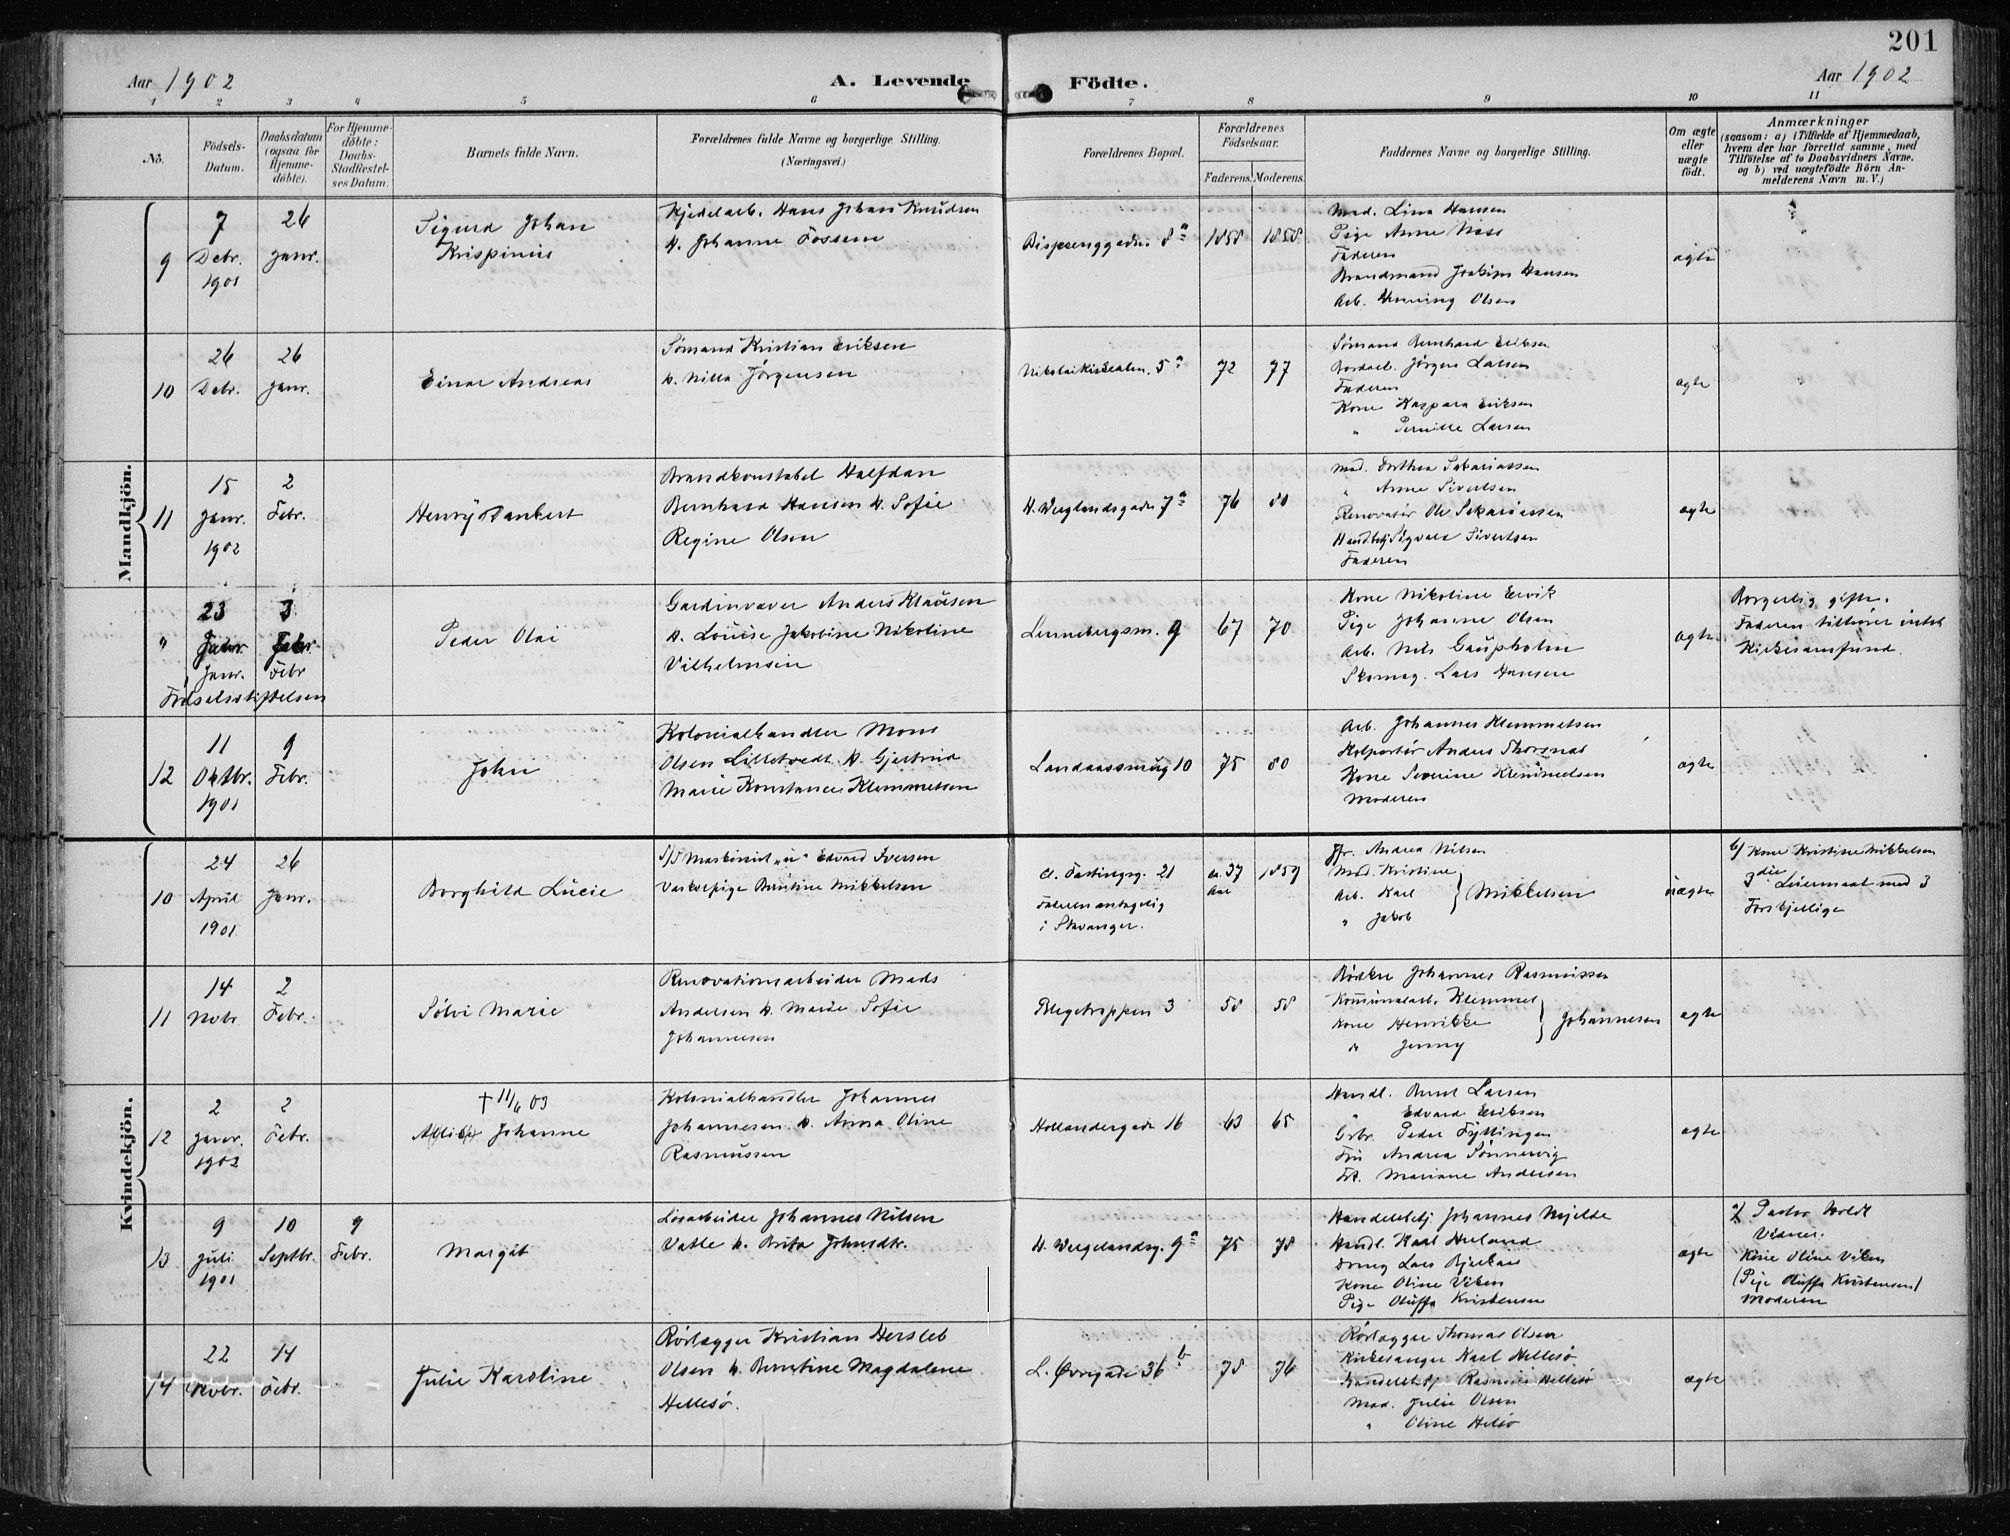 201
Aar 1902
A. Levende
Födte.
Aar 1902
1 2 3 4 5 6 7 8 9 10 11
No.
Födsels-
Datum.
Daabsdatum
(ogsaa for
Hjemme-
döbte).
For Hjemme-
döbte:
Daabs-
Stadfæstel-
ses Datum.
Barnets fulde Navn.
Forældrenes fulde Navne og borgerlige Stilling.
(Næringsvei.)
Forældrenes Bopæl.
Forældrenes
Födselsaar.
Faderens. Moderens.
Faddernes Navne og borgerlige Stilling.
Om ægte
eller
uægte
födt.
Anmærkninger
(saasom: a) i Tilfælde af Hjemmedaab,
hvem der har forrettet samme, med
Tilföielse af to Daabsvidners Navne.
og b) ved uægtefödte Börn An-
melderens Navn m. V.)
Mandkjön.
9
7
Debr.
1901
26
Janr.
Sigurd Johan
Krispinius
Kjedelarb. Hans Johan Knudsen
h. Johanne Fossem
8a
1858 1858
Mad. Lina Hansen
Pige Anne Næss
Faderen
Brandmand Joakim Hansen
Arb. Henning Olsen
ægte
10
26
Debr.
26
Janr.
Einar Andreas
Sömand Kristian Eriksen
h. Nilla Jørgensen
Nikolaikirkealm. 5a
72 77
Sömand Bernhard Eriksen
Jörgen Larsen
Faderen
Kone Kaspara Eriksen
" Pernille Larsen
ægte
11
15
Janr.
1902
2
Febr.
Henry
Brandkonstabel Halfdan
Bernhard Hansen h. Sofie
Regine Olsen
H. Werglandsgade 7a
76 80
Mad. Dorthea Sakariassen
" Anne Sivertsen
Renovatör Ole Sakariassen
Handlbtj Sigvald Sivertsen
Faderen
ægte
"
23
Janr.
3
Febr
Födselsstiftelsen
Peder Olai
Gardinvæver Anders Klausen
h. Louise Jakobine Nikoline
Vilhelmsen
Lennebergsm. 9
67 70
Kone Nikoline Ervik
Pige Johanne Olsen
Arb. Nils Gaupholm
Skomag. Lars Hansen
ægte
Borgerlig gifte.
Faderen tilhører intet
Kirkesamfund.
12
11
Oktbr.
1901
9
Febr.
John
Kolonialhandler Mons
Olsen Lilletvedt h. Gjertrud
Marie Konstance Klemmetsen
Landaassmug 10
75 80
Arb. Johannes Klemmetsen
Kolportör Anders Thorsnes
Kone Severine Klemmetsen
Moderen
ægte
Kvindekjön.
10
24
April
1901
26
Janr.
Borghild Lucie
S/S Maskinist Edvard Iversen
Vaskepige Berntine Mikkelsen
21
Faderen antagelig
i Stavanger.
ca. 37
Aar
1859
Jfr. Andrea Nilsen
Mad. Kristine
Arb. Karl
" Jakob
} Mikkelsen
uægte
b/ Kone Kristine Mikkelsen
3die Leiermaal med 3
Forskjellige
11
14
Nvbr.
2
Febr.
Sölvi Marie
Renovationsarbeider Mads
Andersen h. Marie Sofie
Johannesen
Blegetrappen 3
58 58
Bödker Johannes Rasmussen
Kommunalarb. Klemmet
Kone Henrikke
" Jenny
} Johannesen
ægte
12
2
Janr.
1902
2
Febr.
† 11/6 03
Johanne
Kolonialhandler Johannes
Johannesen h. Anna Oline
Rasmussen
Hollendergade 16
63 65
Handl. Bernt Larsen
" Edvard Eriksen
Grbr. Peder Fyllingen
Fru Andrea Sönnervig
Frk. Mariane Andersen
ægte
13
9
Juli
1901
10
Septbr.
9
Febr.
Margit
Losarbeider Johannes Nilsen
Vatle h. Brita Johnsdtr.
H. Wergelandsg. 9a
75 78
Handelsbtj Johannes Mjelde
Handl. Karl Huland
Lars
Kone Oline Viken
Pige Oluffa Kristensen
ægte
a/ Pastor
Vidner:
Kone Oline Viken
(Pige Oluffa Kristensen)
Moderen
14
22
Nvbr.
14
Febr.
Julie Karoline
Rörlægger Kristian Hersleb
Olsen h. Berntine Magdalene
Hellesö.
L. Øvregade 36b
78 76
Rörlægger Thomas Olsen
Kirkesanger Karl Hellesö
Handelsbtj Rasmus Hellesö
Mad. Julie Olsen
" Oline Helsö
ægte